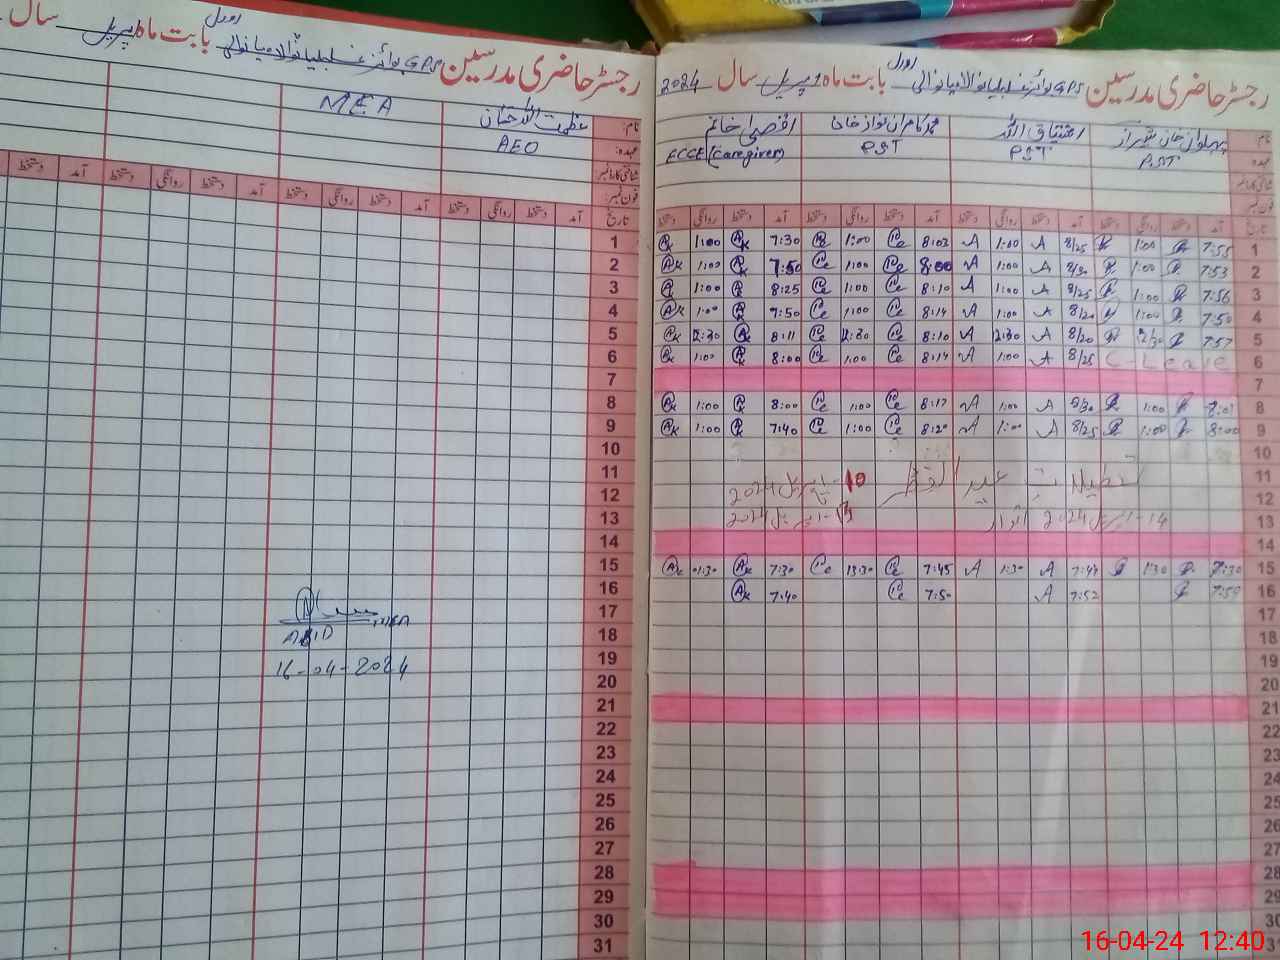 رجسٹر حاضری مدرسین GPS بوائز بابت ماہ اپریل سال 2024
نام: پہلوان خان شیراز اشتیاق اللہ محمد کامران نواز خان اقصیٰ خانم
عہدہ: PST PST PST ECCE (Caregiver)
شناختی کارڈ نمبر
فون نمبر
تاریخ آمد دستخط روانگی دستخط آمد دستخط روانگی دستخط آمد دستخط روانگی دستخط آمد دستخط روانگی دستخط
1 7:55 1:00 8/25 A 1:00 A 8:03 1:00 7:30 1:00
2 7:53 1:00 8/30 A 1:00 A 8:00 1:00 7:50 1:00
3 7:56 1:00 8/25 A 1:00 A 8:10 1:00 8:25 1:00
4 7:50 1:00 8/20 A 1:00 A 8:14 1:00 7:50 1:00
5 7:57 12/30 8/20 A 12:30 A 8:10 12:30 8:11 12:30
6 C-Leave 8/25 A 1:00 A 8:14 1:00 8:00 1:00
7
8 8:01 1:00 8/30 A 1:00 A 8:17 1:00 8:00 1:00
9 8:00 1:00 8/25 A 1:00 A 8:20 1:00 7:40 1:00
10
11 تعطیلات عید الفطر 10-اپریل 2024
12 تا
13 14-اپریل 2024 اتوار 13-اپریل 2024
14
15 7:30 1:30 7:47 A 1:30 A 7:45 13:30 7:30 01:30
16 7:59 7:52 A 7:50 7:40
17
18
19
20
21
22
23
24
25
26
27
28
29
30
31
رجسٹر حاضری مدرسین GPS بوائز بابت ماہ اپریل سال
نام: عظمت اللہ خان MEA
عہدہ: AEO
شناختی کارڈ نمبر
فون نمبر:
تاریخ آمد دستخط روانگی دستخط آمد دستخط روانگی دستخط آمد دستخط روانگی دستخط آمد دستخط
1
2
3
4
5
6
7
8
9
10
11
12
13
14
15
16
17
18
19
20
21
22
23
24
25
26
27
28
29
30
31
ABID MEA
16-04-2024
16-04-24 12:40